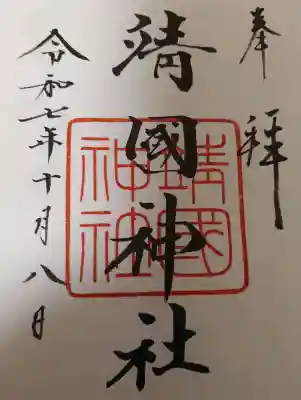 奉拝
靖國神社
靖國神社
令和七年十月八日